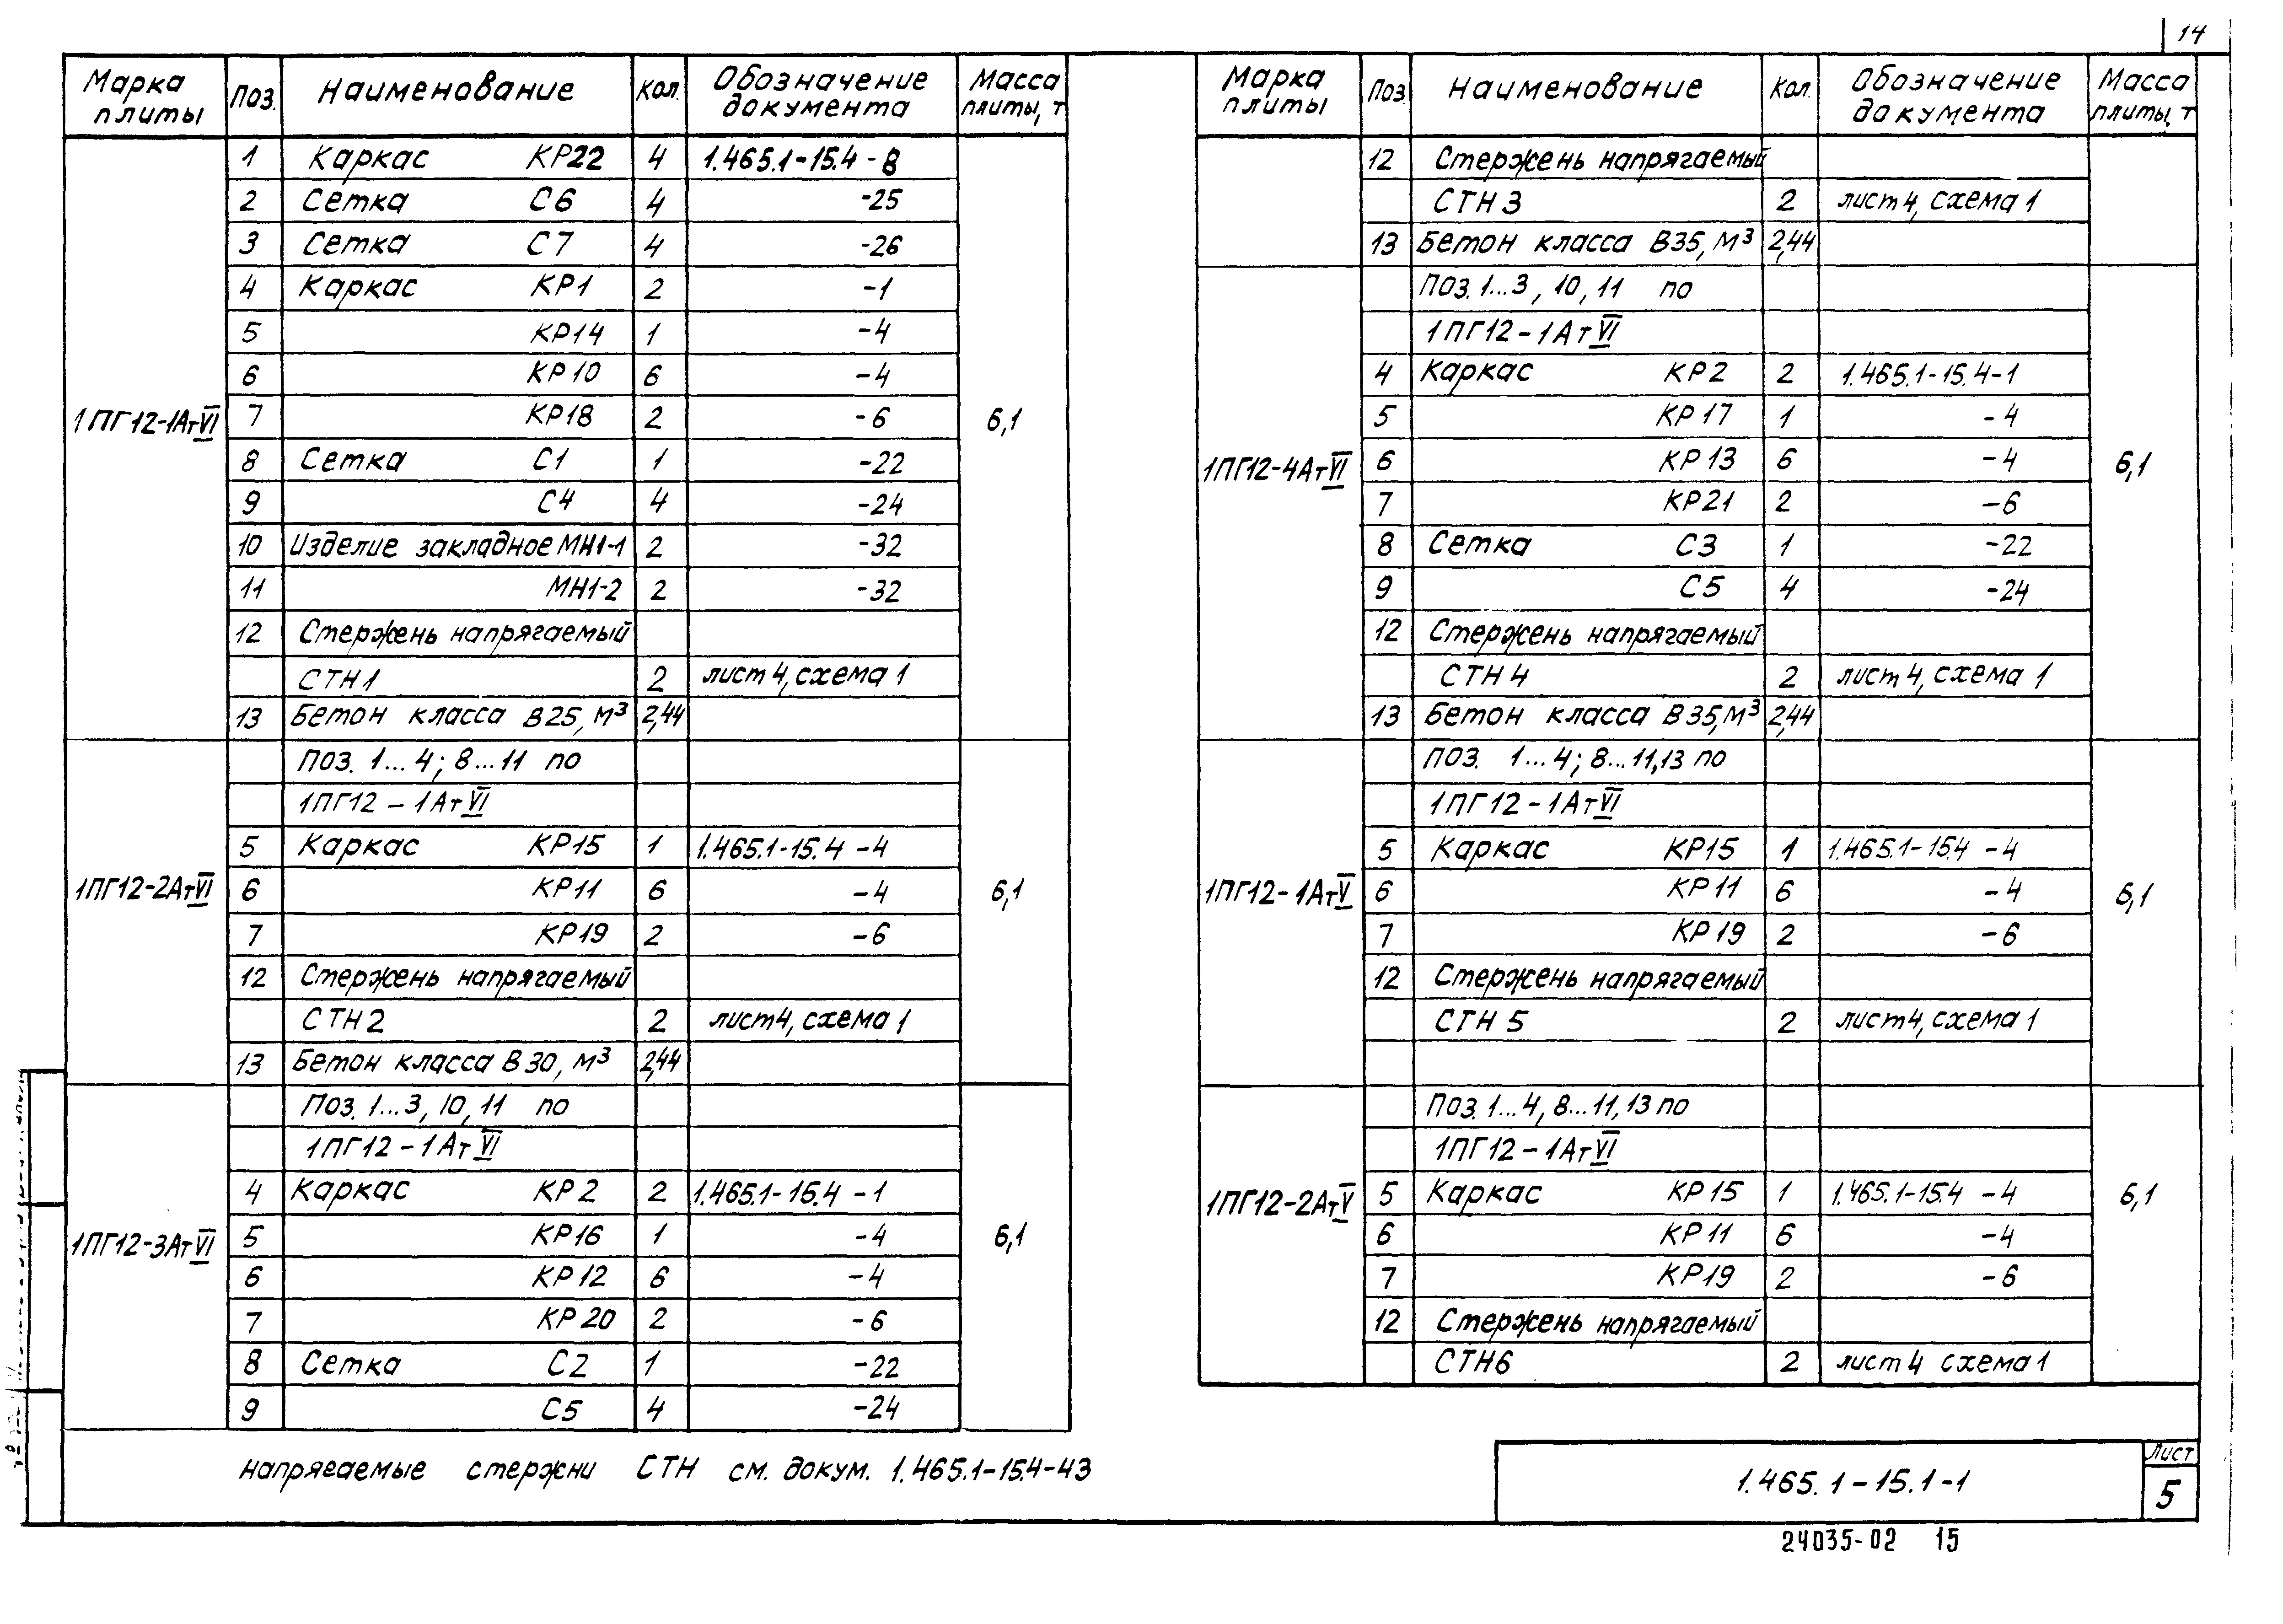 14
Марка плиты | Поз. | Наименование | Кол. | Обозначение документа | Масса плиты, т
1ПГ12-1АтVI | 1 | Каркас КР22 | 4 | 1.465.1-15.4-8 | 6,1
2 | Сетка С6 | 4 | -25
3 | Сетка С7 | 4 | -26
4 | Каркас КР1 | 2 | -1
5 | КР14 | 1 | -4
6 | КР10 | 6 | -4
7 | КР18 | 2 | -6
8 | Сетка С1 | 1 | -22
9 | С4 | 4 | -24
10 | Изделие закладное МН1-1 | 2 | -32
11 | МН1-2 | 2 | -32
12 | Стержень напрягаемый
СТН1 | 2 | лист 4, схема 1
13 | Бетон класса В25, м³ | 2,44
1ПГ12-2АтVI | Поз. 1...4; 8...11 по | 6,1
1ПГ12-1АтVI
5 | Каркас КР15 | 1 | 1.465.1-15.4-4
6 | КР11 | 6 | -4
7 | КР19 | 2 | -6
12 | Стержень напрягаемый
СТН2 | 2 | лист 4, схема 1
13 | Бетон класса В30, м³ | 2,44
1ПГ12-3АтVI | Поз. 1...3, 10, 11 по | 6,1
1ПГ12-1АтVI
4 | Каркас КР2 | 2 | 1.465.1-15.4-1
5 | КР16 | 1 | -4
6 | КР12 | 6 | -4
7 | КР20 | 2 | -6
8 | Сетка С2 | 1 | -22
9 | С5 | 4 | -24
Марка плиты | Поз | Наименование | Кол. | Обозначение документа | Масса плиты, т
12 | Стержень напрягаемый
СТН3 | 2 | лист 4, схема 1
13 | Бетон класса В35, м³ | 2,44
1ПГ12-4АтVI | Поз. 1...3, 10, 11 по | 6,1
1ПГ12-1АтVI
4 | Каркас КР2 | 2 | 1.465.1-15.4-1
5 | КР17 | 1 | -4
6 | КР13 | 6 | -4
7 | КР21 | 2 | -6
8 | Сетка С3 | 1 | -22
9 | С5 | 4 | -24
12 | Стержень напрягаемый
СТН4 | 2 | лист 4, схема 1
13 | Бетон класса В35, м³ | 2,44
1ПГ12-1АтV | Поз. 1...4; 8...11,13 по | 6,1
1ПГ12-1АтVI
5 | Каркас КР15 | 1 | 1.465.1-15.4 -4
6 | КР11 | 6 | -4
7 | КР19 | 2 | -6
12 | Стержень напрягаемый
СТН5 | 2 | лист 4, схема 1
1ПГ12-2АтV | Поз. 1...4, 8...11, 13 по | 6,1
1ПГ12-1АтVI
5 | Каркас КР15 | 1 | 1.465.1-15.4 -4
6 | КР11 | 6 | -4
7 | КР19 | 2 | -6
12 | Стержень напрягаемый
СТН6 | 2 | лист 4 схема 1
напрягаемые стержни СТН см. докум. 1.465.1-15.4-43
1.465.1-15.1-1
Лист
5
24035-02 15